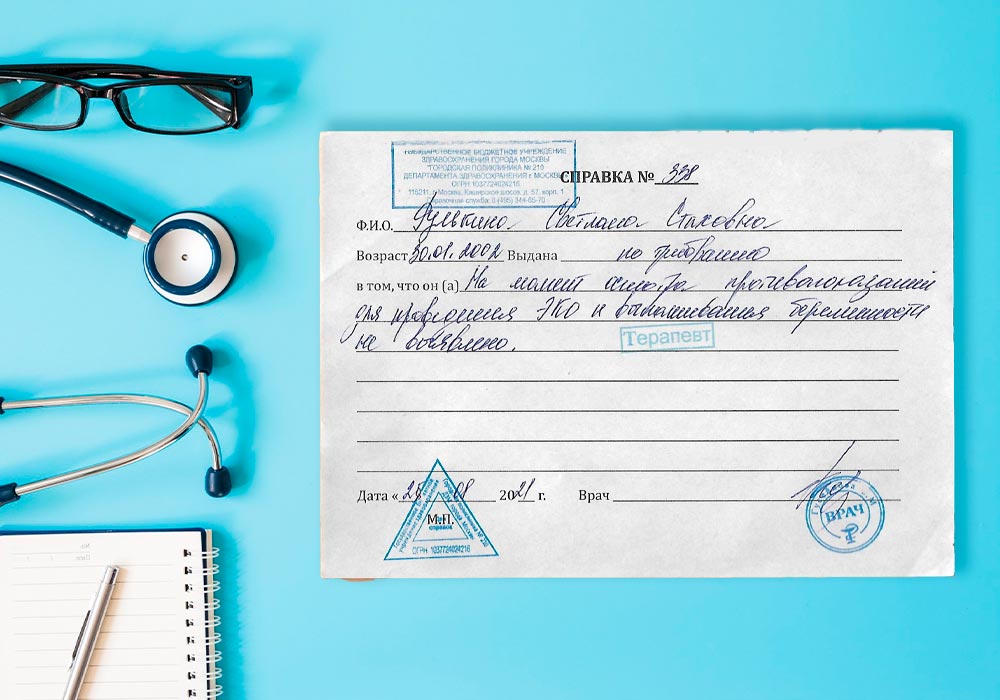 ГОСУДАРСТВЕННОЕ БЮДЖЕТНОЕ УЧРЕЖДЕНИЕ
ЗДРАВООХРАНЕНИЯ ГОРОДА МОСКВЫ
"ГОРОДСКАЯ ПОЛИКЛИНИКА № 210
ДЕПАРТАМЕНТА ЗДРАВООХРАНЕНИЯ г. МОСКВЫ
ОГРН 1037724024216
115211, г. Москва, Каширское шоссе, д. 57, корп. 1
Справочная служба: 8 (495) 344-65-70
СПРАВКА № 338
Ф.И.О. Светлана
Возраст 30.01.2002 Выдана по требованию
в том, что он (а) На момент осмотра противопоказаний
для проведения ЭКО и вынашивания беременности
не выявлено.
Терапевт
Дата « 25 08 2021 г. Врач
М.П.
справок
ОГРН 1037724024216
ВРАЧ
No.
Date